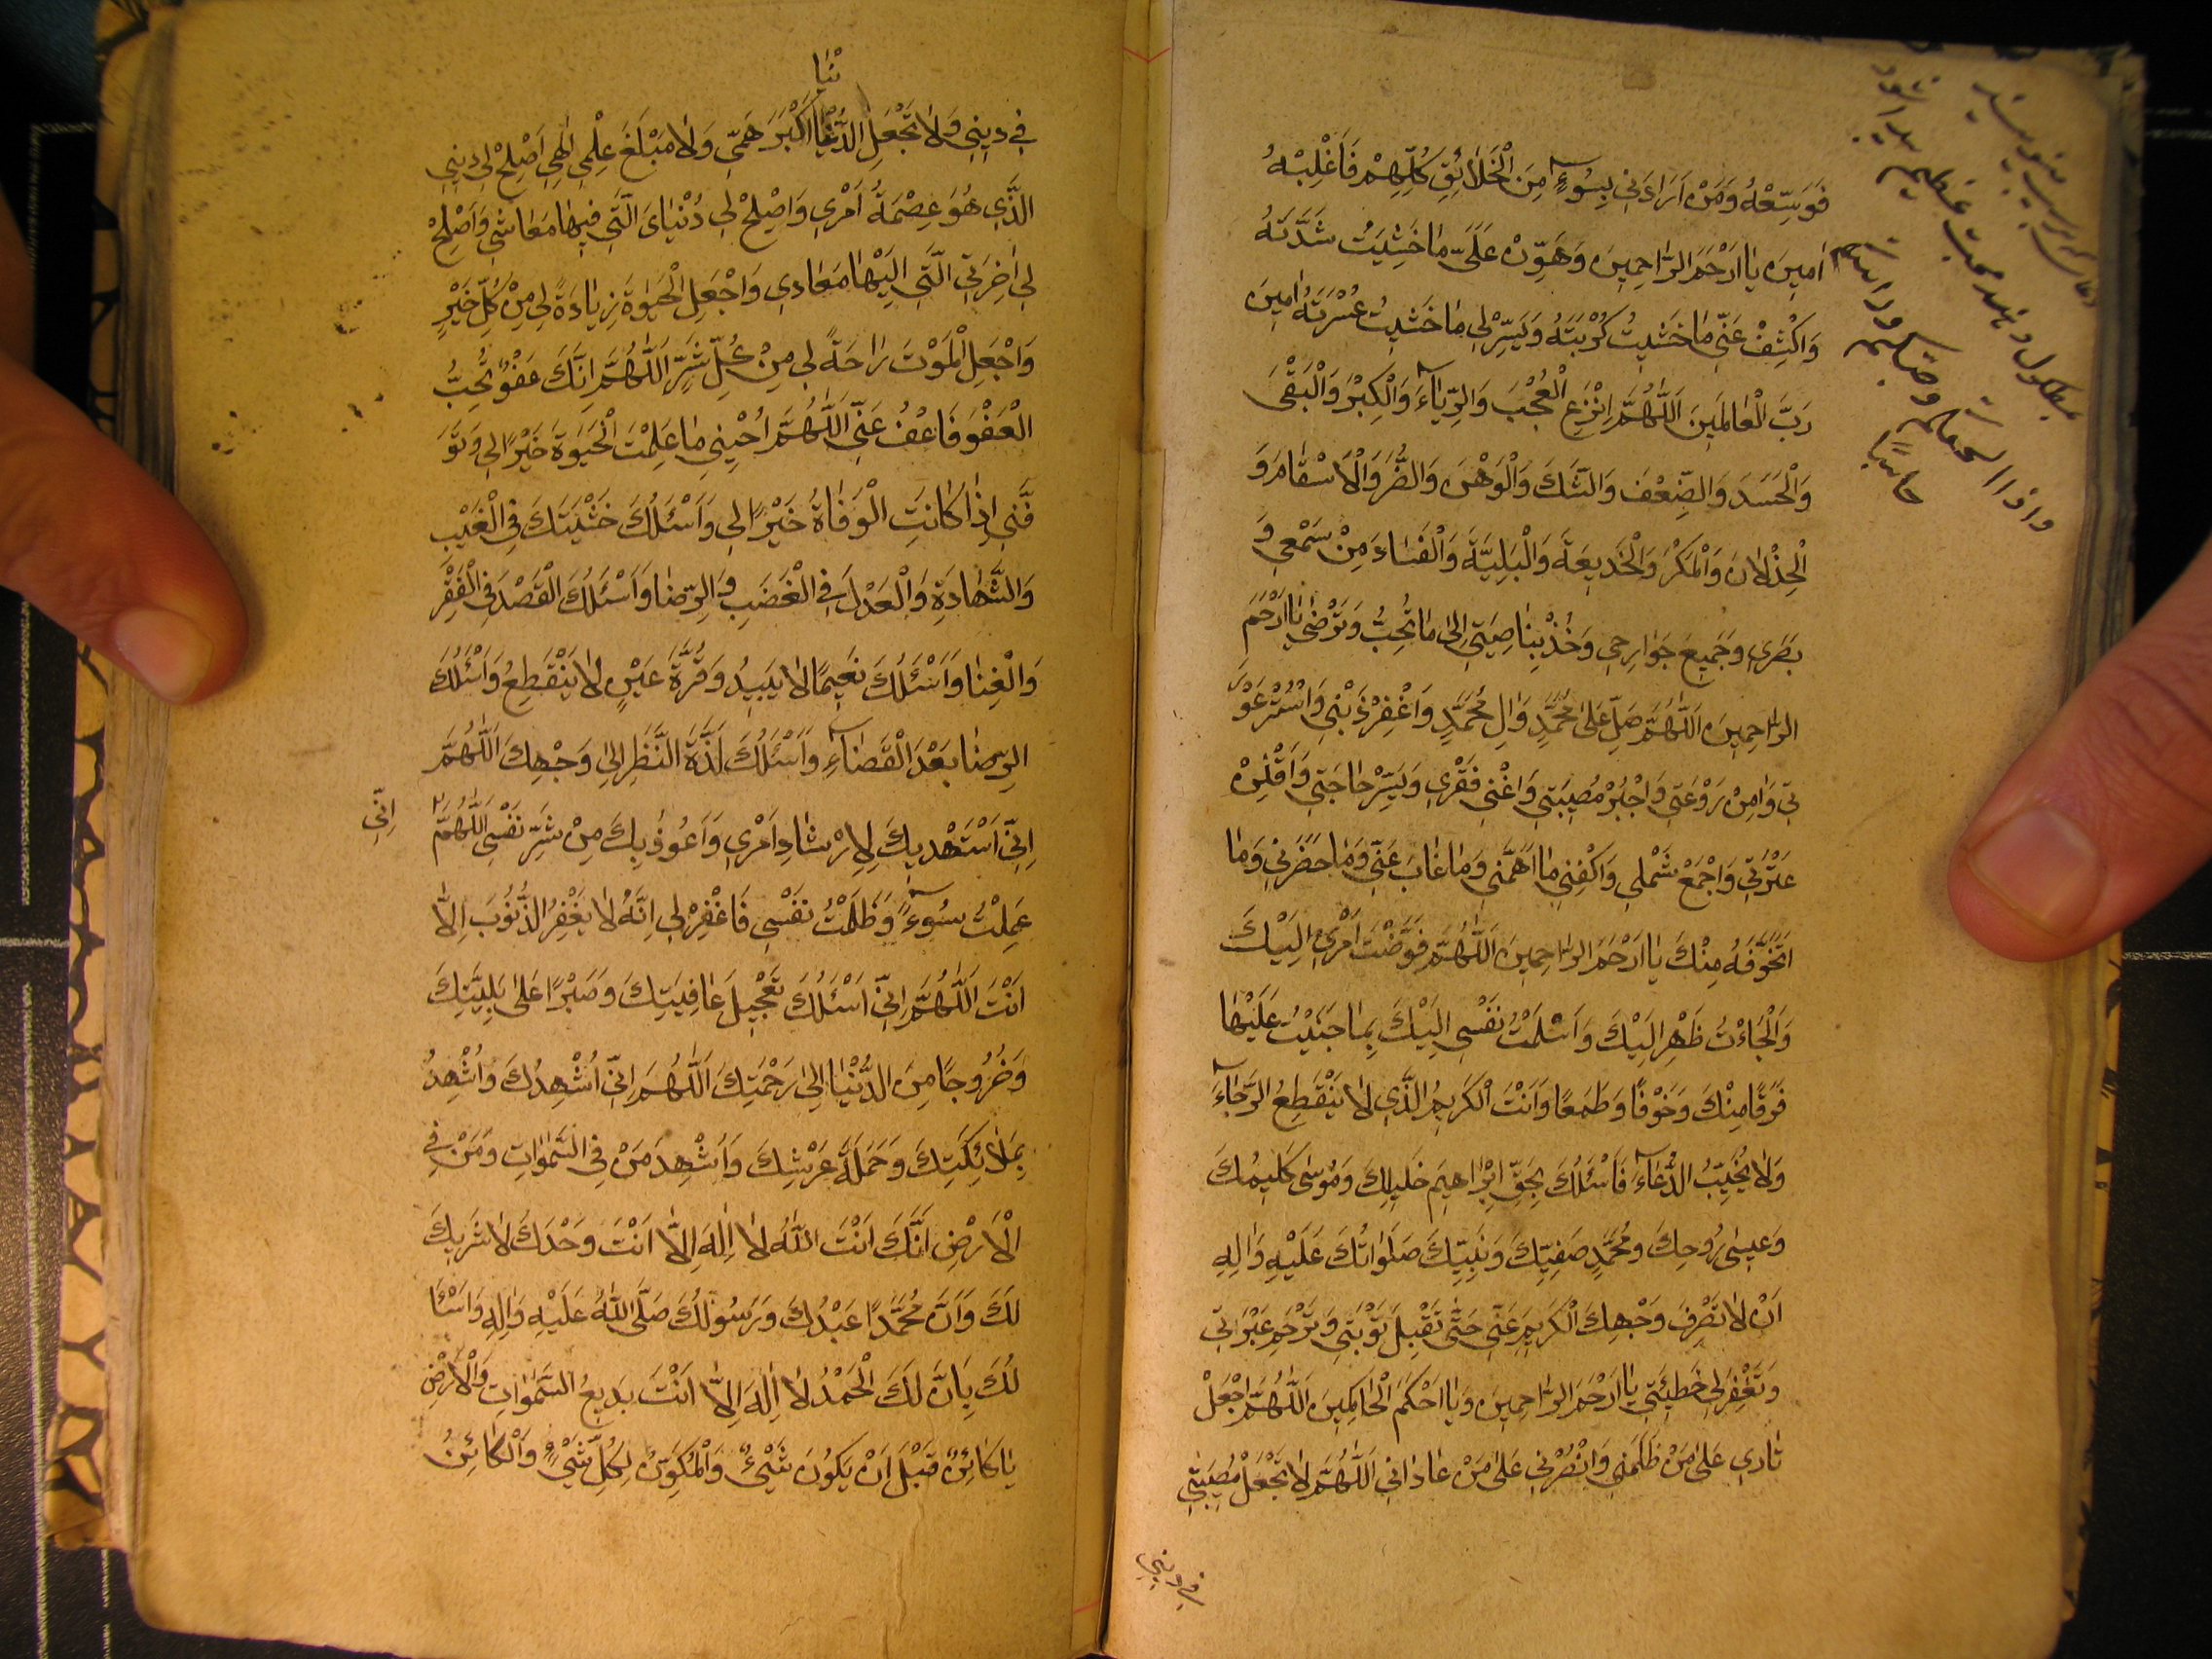 فَوَسِّعْهُ وَمَنْ اَرَادَنِي بِسُوءٍ مِنَ الْخَلَائِقِ كُلِّهِمْ فَاَغْلِبْهُ
اٰمِينَ يَا اَرْحَمَ الرَّاحِمِينَ وَهَوِّنْ عَلَيَّ مَا خَشِيتُ شَدَّتَهُ
وَاكْشِفْ عَنِّي مَا خَشِيتُ كُرْبَتَهُ وَيَسِّرْ لِي مَا خَشِيتُ عُسْرَتَهُ اٰمِينَ
رَبَّ الْعَالَمِينَ اَللّٰهُمَّ انْزَعِ الْعُجْبَ وَالرِّيَاءَ وَالْكِبْرَ وَالْبَغْيَ
وَالْحَسَدَ وَالضِّعْفَ وَالشَّكَ وَالْوَهْنَ وَالضُّرَ وَالْاَسْقَامَ وَ
الْخِذْلَانَ وَالْمَكْرَ وَالْخَدِيعَةَ وَالْبَلِيَّةَ وَالْفَسَادَ مِنْ سَمْعِي وَ
بَصَرِي وَجَمِيعَ جَوَارِحِي وَخُذْ بِنَاصِيَتِي اِلٰى مَا تُحِبُّ وَتَرْضٰى يَا اَرْحَمَ
الرَّاحِمِينَ اَللّٰهُمَّ صَلِّ عَلٰى مُحَمَّدٍ وَاٰلِ مُحَمَّدٍ وَاغْفِرْ ذَنْبِي وَاسْتُرْ عَوْرَ
تِي وَاٰمِنْ رَوْعَتِي وَاجْبُرْ مُصِيبَتِي وَاغْنِ فَقْرِي وَيَسِّرْ حَاجَتِي وَاَقِلْنِي
عَثْرَتِي وَاجْمَعْ شَمْلِي وَاكْفِنِي مَا اَهَمَّنِي وَمَا غَابَ عَنِّي وَمَا حَضَرَنِي وَمَا
اَتَخَوَّفُهُ مِنْكَ يَا اَرْحَمَ الرَّاحِمِينَ اَللّٰهُمَّ فَوَّضْتُ اَمْرِي اِلَيْكَ
وَاَلْجَاْتُ ظَهْرِي اِلَيْكَ وَاَسْلَمْتُ نَفْسِي اِلَيْكَ بِمَا جَنَيْتُ عَلَيْهَا
فَرَقًا مِنْكَ وَخَوْفًا وَطَمَعًا وَاَنْتَ الْكَرِيمُ الَّذِي لَا يَنْقَطِعُ الرَّجَاءَ
وَلَا يُخَيِّبُ الدُّعَاءَ فَاَسْئَلُكَ بِحَقِّ اِبْرَاهِيمَ خَلِيلِكَ وَمُوسٰى كَلِيمِكَ
وَعِيسٰى رُوحِكَ وَمُحَمَّدٍ صَفِيِّكَ وَنَبِيِّكَ صَلَوَاتُكَ عَلَيْهِ وَاٰلِهِ
اَنْ لَا تَصْرِفَ وَجْهَكَ الْكَرِيمَ عَنِّي حَتّٰى تَقْبَلَ تَوْبَتِي وَتَرْحَمَ عَبْرَاتِي
وَتَغْفِرَ لِي خَطِيئَتِي يَا اَرْحَمَ الرَّاحِمِينَ وَيَا اَحْكَمَ الْحَاكِمِينَ اَللّٰهُمَّ اجْعَلْ
ثَارِي عَلٰى مَنْ ظَلَمَنِي وَانْصُرْنِي عَلٰى مَنْ عَادَانِي اَللّٰهُمَّ لَا تَجْعَلْ مُصِيبَتِي
فِي دِينِي
نْيَا
فِي دِينِي وَلَا تَجْعَلِ الدُّنْيَا اَكْبَرَ هَمِّي وَلَا مَبْلَغَ عِلْمِي اِلٰهِي اَصْلِحْ لِي دِينِي
الَّذِي هُوَ عِصْمَةُ اَمْرِي وَاَصْلِحْ لِي دُنْيَايَ الَّتِي فِيهَا مَعَاشِي وَاَصْلِحْ
لِي اٰخِرَتِي الَّتِي اِلَيْهَا مَعَادِي وَاجْعَلِ الْحَيٰوةَ زِيَادَةً لِي مِنْ كُلِّ خَيْرٍ
وَاجْعَلِ الْمَوْتَ رَاحَةً لِي مِنْ كُلِّ شَرٍّ اَللّٰهُمَّ اِنَّكَ عَفُوٌّ تُحِبُّ
الْعَفْوَ فَاعْفُ عَنِّي اَللّٰهُمَّ اَحْيِنِي مَا عَلِمْتَ الْحَيٰوةَ خَيْرًا لِي وَتَوَ
فَّنِي اِذَا كَانَتِ الْوَفَاةُ خَيْرًا لِي وَاَسْئَلُكَ خَشْيَتَكَ فِي الْغَيْبِ
وَالشَّهَادَةِ وَالْعَدْلَ فِي الْغَضَبِ وَالرِّضَا وَاَسْئَلُكَ الْقَصْدَ فِي الْفَقْرِ
وَالْغِنَا وَاَسْئَلُكَ نَعِيمًا لَا يَبِيدُ وَقُرَّةَ عَيْنٍ لَا يَنْقَطِعُ وَاَسْئَلُكَ
الرِّضَا بَعْدَ الْقَضَاءِ وَاَسْئَلُكَ لَذَّةَ النَّظَرِ اِلٰى وَجْهِكَ اَللّٰهُمَّ
اِنِّي اَسْتَهْدِيكَ لِاِرْشَادِ اَمْرِي وَاَعُوذُ بِكَ مِنْ شَرِّ نَفْسِي اَللّٰهُمَّ
اِنِّي
عَمِلْتُ سُوءً وَظَلَمْتُ نَفْسِي فَاغْفِرْ لِي اِنَّهُ لَا يَغْفِرُ الذُّنُوبَ اِلَّا
اَنْتَ اَللّٰهُمَّ اِنِّي اَسْئَلُكَ تَعْجِيلَ عَافِيَتِكَ وَصَبْرًا عَلٰى بَلِيَّتِكَ
وَخُرُوجًا مِنَ الدُّنْيَا اِلٰى رَحْمَتِكَ اَللّٰهُمَّ اِنِّي اُشْهِدُكَ وَاُشْهِدُ
مَلَائِكَتِكَ وَحَمَلَةَ عَرْشِكَ وَاُشْهِدُ مَنْ فِي السَّمٰوَاتِ وَمَنْ فِي
الْاَرْضِ اَنَّكَ اَنْتَ اللّٰهُ لَا اِلٰهَ اِلَّا اَنْتَ وَحْدَكَ لَا شَرِيكَ
لَكَ وَاَنَّ مُحَمَّدًا عَبْدُكَ وَرَسُولُكَ صَلَّى اللّٰهُ عَلَيْهِ وَاٰلِهِ وَاَسْئَا
لُكَ بِاَنَّ لَكَ الْحَمْدُ لَا اِلٰهَ اِلَّا اَنْتَ بَدِيعُ السَّمٰوَاتِ وَالْاَرْضِ
يَا كَائِنُ قَبْلَ اَنْ يَكُونَ شَيْئٌ وَالْمُكَوِّنَ لِكُلِّ شَيْءٍ وَالْكَائِنُ